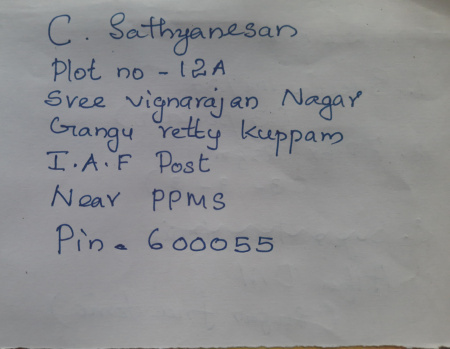 C. Sathyanesan
Plot no - 12A
Sree vignarajan Nagar
Gangu retty kuppam
I.A.F Post
Near PPMS
Pin. 600055